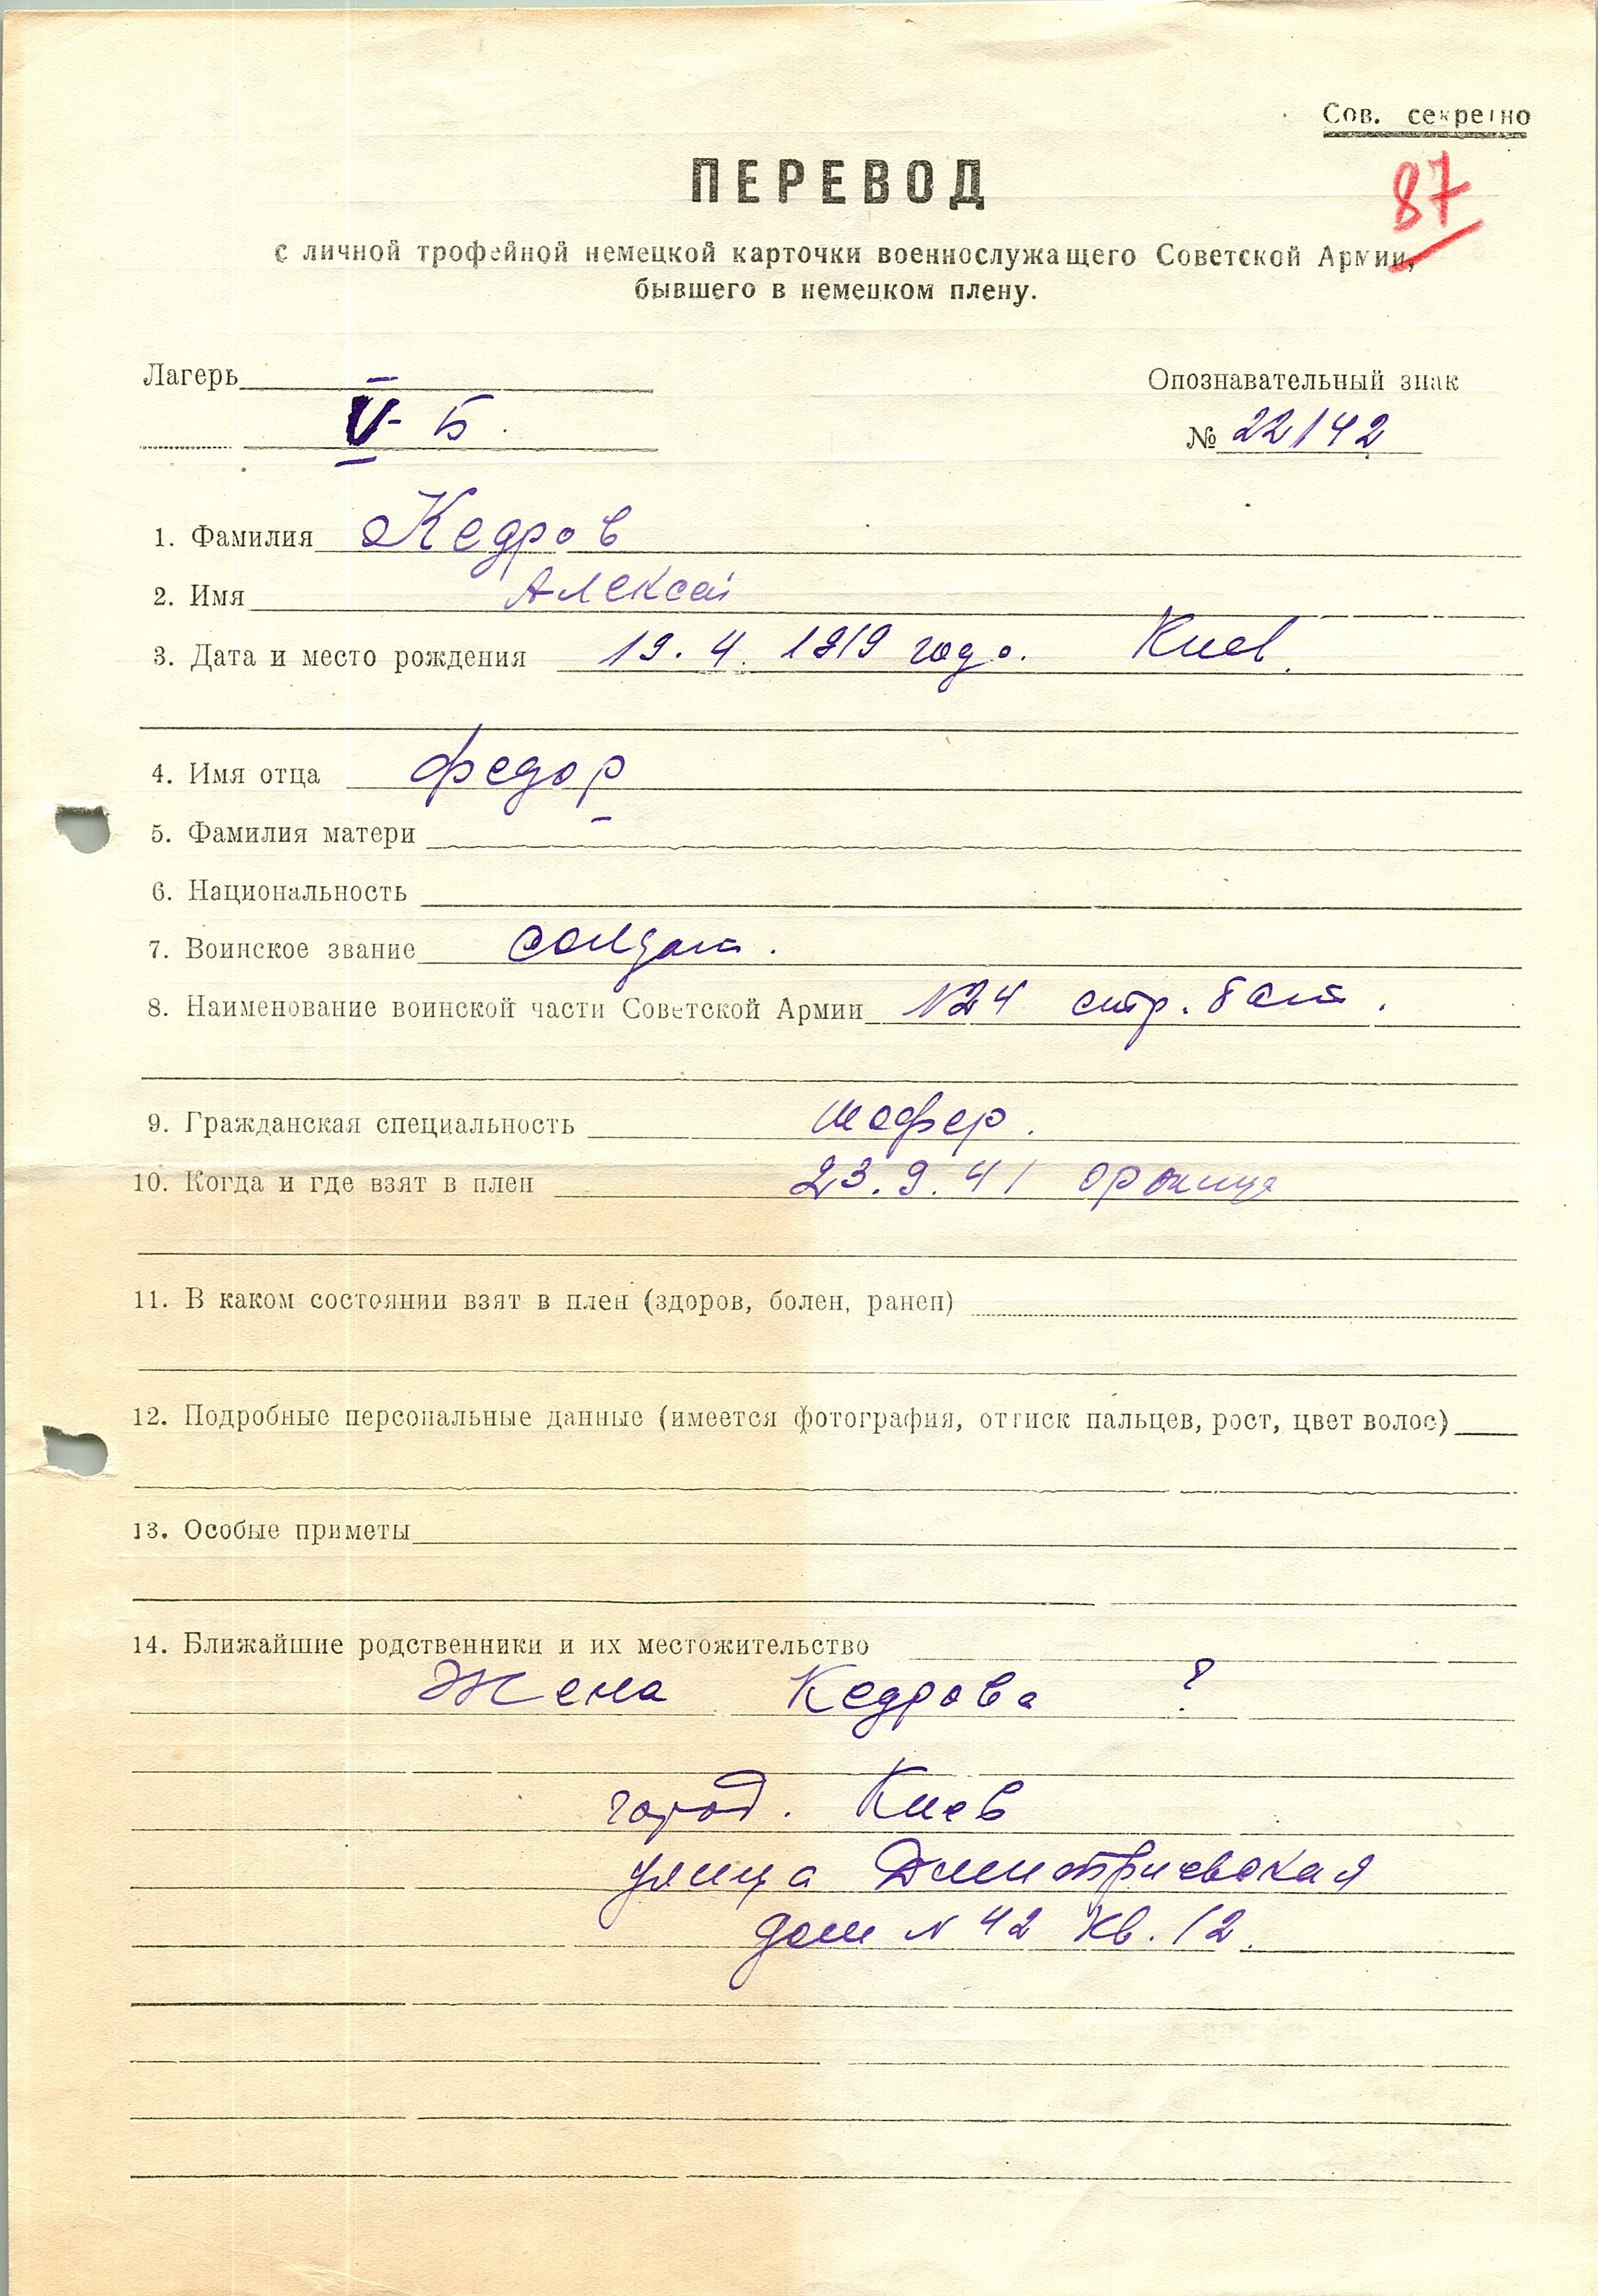 Сов. секретно
87
ПЕРЕВОД
с личной трофейной немецкой карточки военнослужащего Советской Армии,
бывшего в немецком плену.
Лагерь
Опознавательный знак
V-Б.
№ 22142
1. Фамилия Кедров
2. Имя Алексей
3. Дата и место рождения 19. 4. 1919 года. Киев.
4. Имя отца Федор
5. Фамилия матери
6. Национальность
7. Воинское звание солдат.
8. Наименование воинской части Советской Армии №24 стр. бат.
9. Гражданская специальность шофер.
10. Когда и где взят в плен 23. 9. 41 Оржица
11. В каком состоянии взят в плен (здоров, болен, ранен)
12. Подробные персональные данные (имеется фотография, оттиск пальцев, рост, цвет волос)
13. Особые приметы
14. Ближайшие родственники и их местожительство
Жена Кедрова ?
город. Киев
улица Дмитриевская
дом № 42 кв. 12.